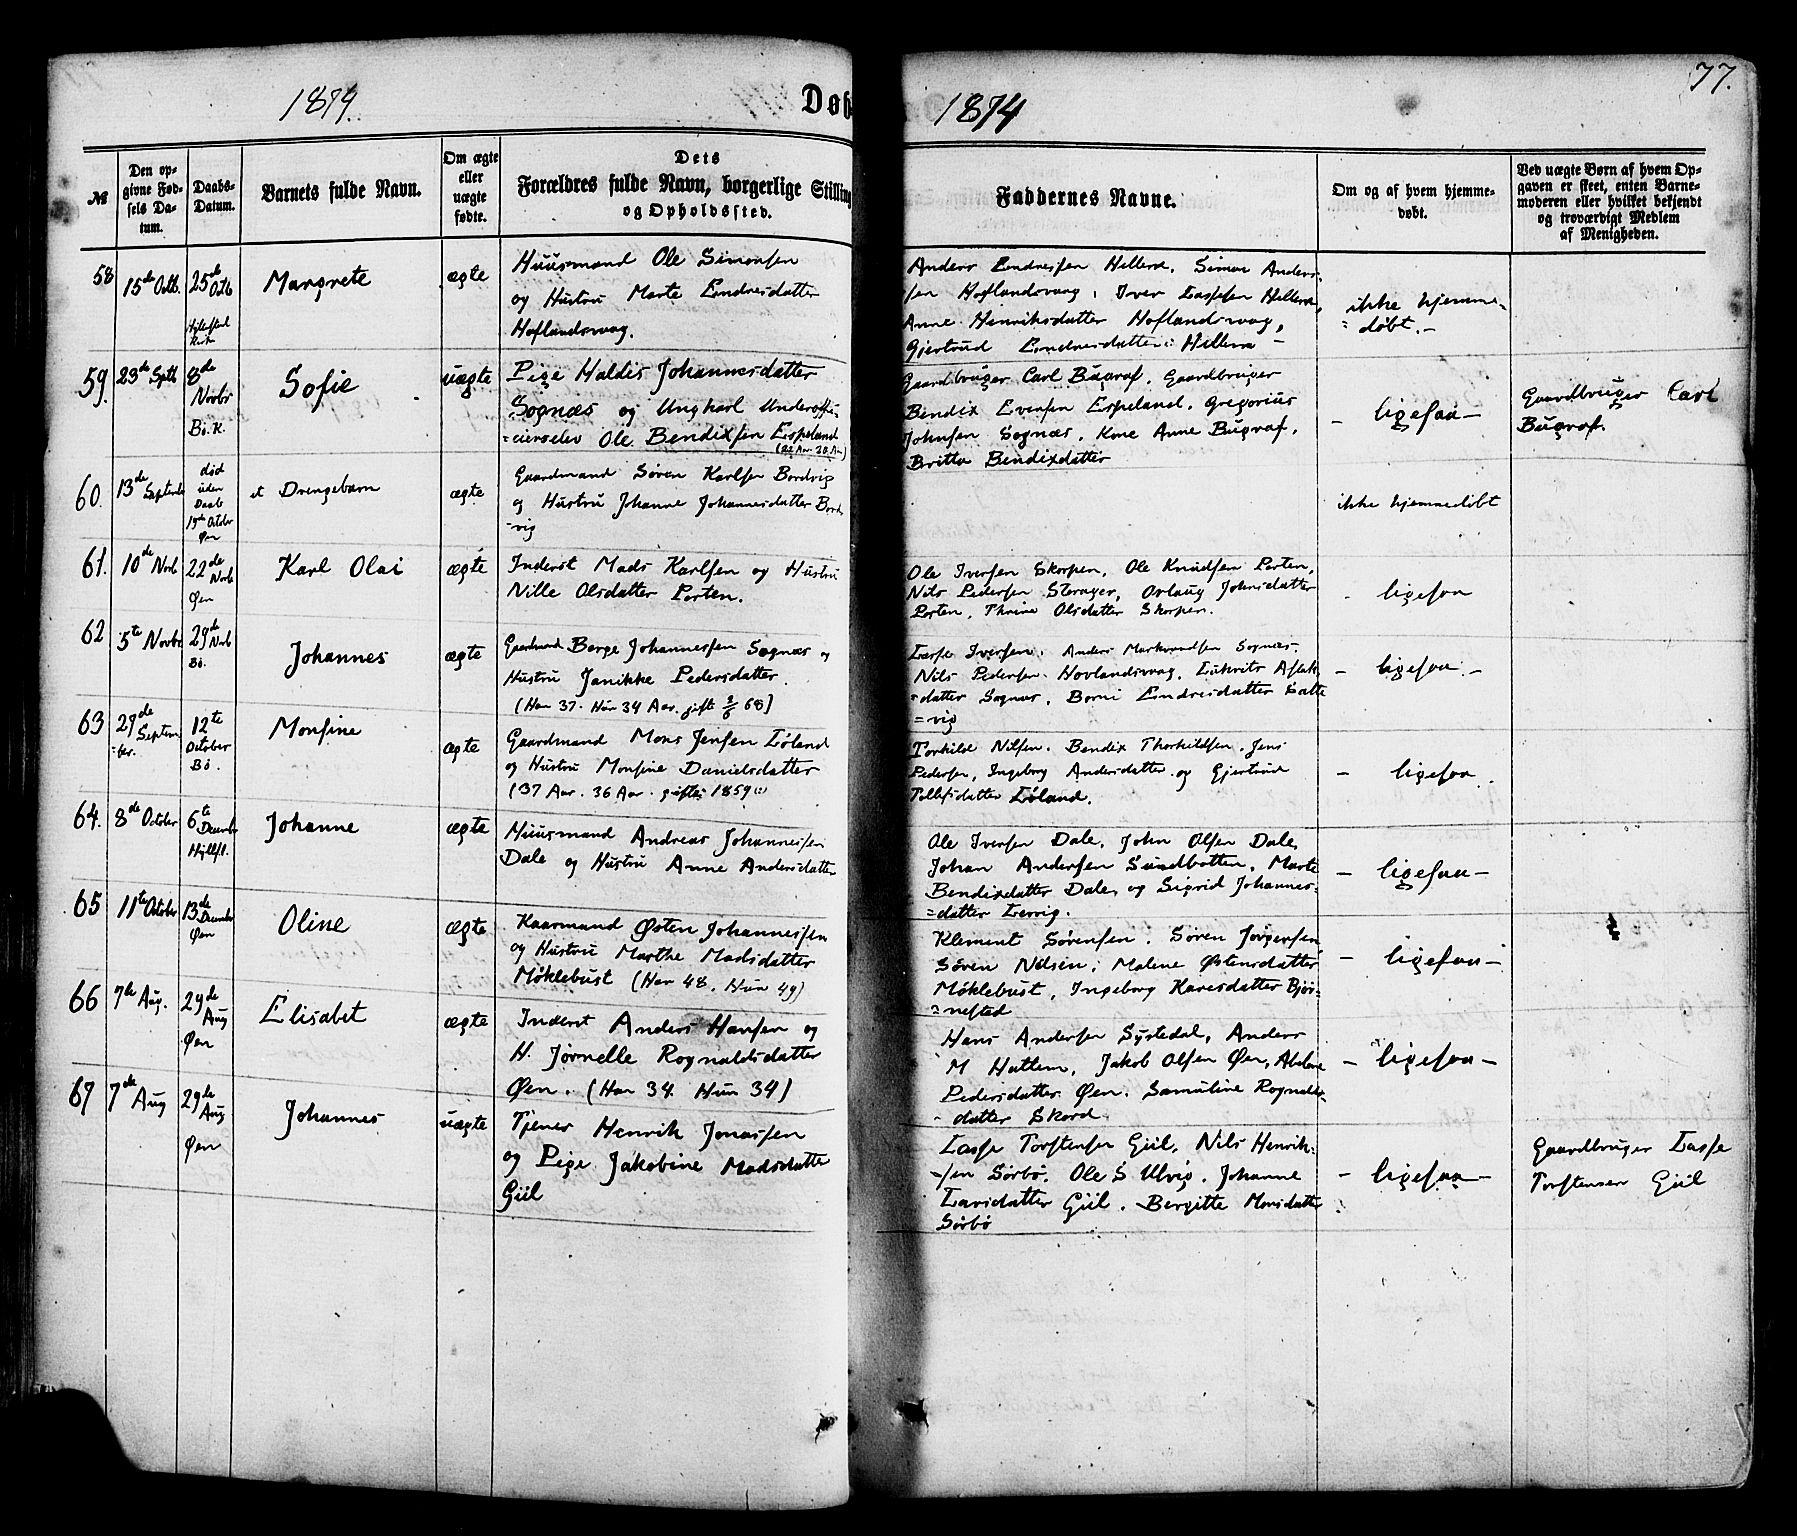 1874.
Døb
1874
77.
№
Den op-
givne Fød-
sels Da-
tum.
Daabs-
Datum.
Barnets fulde Navn.
Om ægte
eller
uægte
fødte.
Dets
Forældres fulde Navn, borgerlige Stilling
og Opholdssted.
Faddernes Navne.
Om og af hvem hjemme-
døbt.
Ved uægte Børn af hvem Op-
gaven er skeet, enten Barne-
moderen eller hvilket bekjendt
og troværdigt Medlem
af Menigheden.
58
15de Octb.
25de
Octb
Margrete
ægte
Huusmand Ole Simonsen
og Hustru Marte Endresdatter
Hoflandsvaag.
Anders Endresen Hellera, Simon Anders-
sen Hoflandsvaag, Iver Lassesen Hellera,
Anne Henriksdatter Hoflandsvaag,
Gjertrud Endresdatter Hellera -
ikke hjemme-
=døbt.-
59.
23de Sptb
8de
Novbr
Bø. K.
Sofie
uægte
Pige Haldis Johannesdatter
Sognæs og Ungkarl Underoffi-
=cierselev Ole Bendixsen Espeland
(22 Aar 20 Aar)
Gaardbruger Carl Bugraf, Gaardbruger
Bendix Eversen Espeland, Gregorius
Johnsen Sognæs, Kone Anne Bugraf,
Britta Bendixdatter
- ligesaa -
Gaardbruger Carl
Bugraf.
60.
13de
Septembr
død
uden
Daab
Octbr
Øen
et Drengebarn
ægte
Gaardmand Søren Karlsen Bordvig
og Hustru Johanne Johannesdatter Bord-
-vig
ikke hjemmedøbt
61.
10de Novb
22de
Novb
Øen
Karl Olai
ægte
Inderst Mads Karlsen og Hustru
Nille Olsdatter Porten.
Ole Iversen Skorpen, Ole Knudsen Porten,
Nils Pedersen Storager, Ovlaug Johnsdatter
Porten, Thrine Olsdatter Skorpen.
- ligesaa
62
5te Novbr
29de
Novb
Bø.
Johannes
ægte
Gaardmand Børge Johannessen Sognæs og
Hustru Janikke Pedersdatter.
(Han 37. Hun 34 Aar. gift 68)
Lasse Iversen, Anders Markvardsen Sognæs,
Nils Pedersen Hovlandsvaag, Aslak-
=datter Sognæs, Borni Endresdatter Salte
=vig
- ligesaa. -
63
29de
Septem-
=ber.
12te
October
Bø.
Monsine
ægte
Gaardmand Mons Jensen Løland
og Hustru Monsine Danielsdatter
(37 Aar. 36 Aar. gifte 1859)
Torkild Nilsen, Bendix Thorkildsen, Jens
Pedersen, Ingeborg Andersdatter og Gjertrud
Tollefsdatter Løland.
- ligesaa.
64.
8de October
6te
Decembr
Hyllest.
Johanne
ægte
Huusmand Andreas Johannessen
Dale og Hustru Anne Andersdatter
Ole Iversen Dale, John Olsen Dale,
Johan Andersen Sundbotten, Marte
Bendixdatter Dale, og Sigrid Johannes-
=datter Lervig.
- ligesaa -
65
11te October
13de
December
Øen
Oline
ægte
Kaarmand Østen Johannessen
og Hustru Marthe Madsdatter
Møklebust (Han 48. Hun 49)
Klement Sørensen, Søren Jørgensen
Søren Nilsen, Malene Østensdatter
Møklebust, Ingeborg Haresdatter Bjør-
=nefted
- ligesaa -
66
7de Aug.
29de
Aug
Øen
Elisabet
ægte
Inderst Anders Hansen og
H. Jørnelle Rognaldsdatter
Øen. (Han 34. Hun 34)
Hans Andersen Systedal, Anders
M Hattem, Jakob Olsen Øen, Abelone
Pedersdatter Øen. Samuline Rognalds-
-datter Skord
- ligesaa -
67
7de Aug
29de
Aug
Øen
Johannes
uægte
Tjener Henrik Jonassen
og Pige Jakobine Madsdatter
Giil
Lasse Torstensen Giil, Nils Henrik-
-sen Sørbø, Ole S Ulvig, Johanne
Larsdatter Giil, Bergitte Monsdatter
Sørbø
- ligesaa -
Gaardbruger Lasse
Torstensen Giil